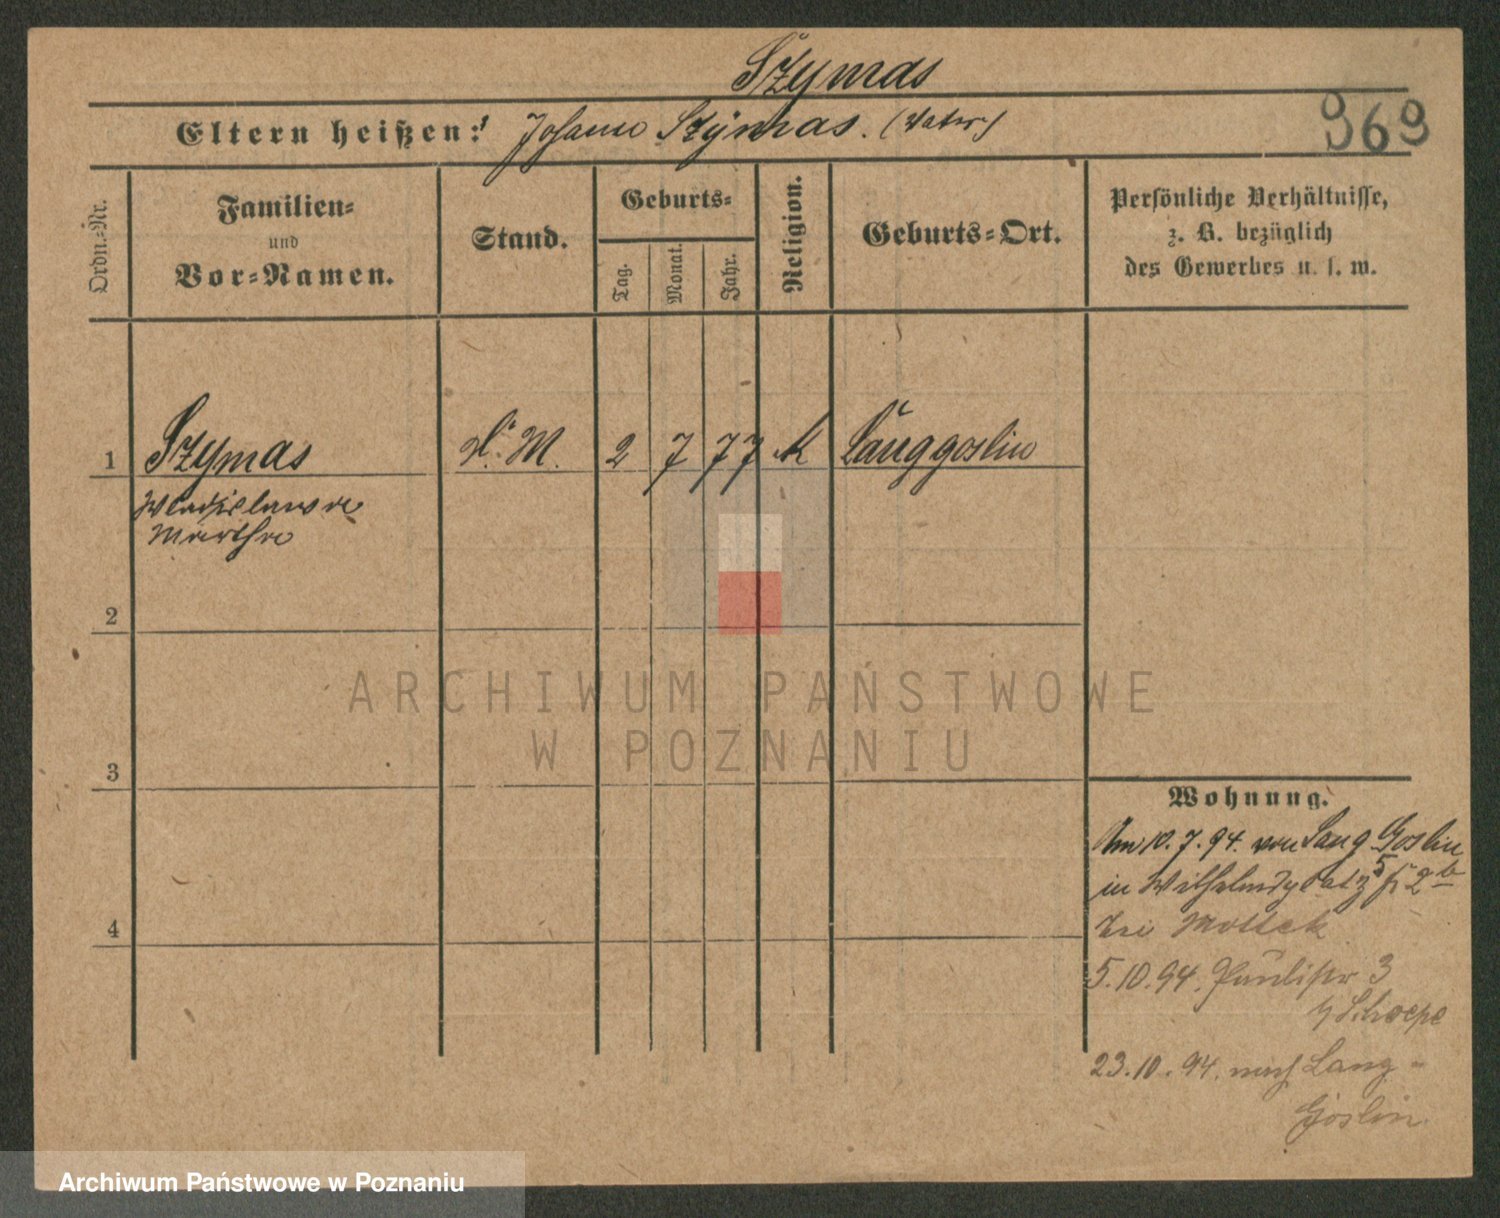 Szymas
Eltern heißen: Johann Szymas. (Vater)
969
Ordn.-Nr.
Familien-
und
Vor-Namen.
Stand.
Geburts-
Tag.
Monat.
Jahr.
Religion.
Geburts-Ort.
Persönliche Verhältnisse,
z. B. bezüglich
des Gewerbes u. s. w.
1 Szymas 2 7 77 k Langgoslin
Wladislawa
Martha
2
3
4
Wohnung.
Am 10.7.94. von Lang Goslin
in Wilhelmsplatz
bei Mottek
5.10.94. Paulistr 3
23.10.94. nach Lang-
Goslin.
ARCHIWUM PAŃSTWOWE
W POZNANIU
Archiwum Państwowe w Poznaniu